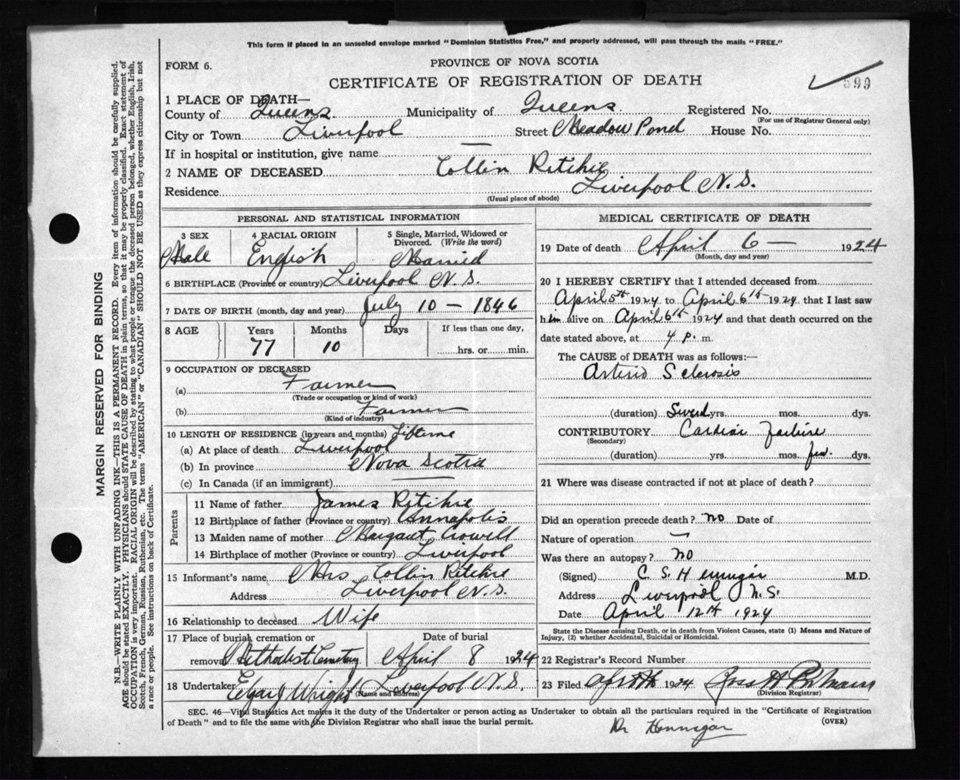 This form if placed in an unsealed envelope marked "Dominion Statistics Free," and properly addressed, will pass through the mails "FREE."
FORM 6.
PROVINCE OF NOVA SCOTIA
CERTIFICATE OF REGISTRATION OF DEATH
599
1 PLACE OF DEATH—
County of Queens Municipality of Queens Registered No.
(For use of Registrar General only)
City or Town Liverpool Street Meadow Pond House No.
If in hospital or institution, give name —
2 NAME OF DECEASED Collin Ritchie
Residence Liverpool N.S.
(Usual place of abode)
PERSONAL AND STATISTICAL INFORMATION
3 SEX Male
4 RACIAL ORIGIN English
5 Single, Married, Widowed or Divorced. (Write the word) Married
6 BIRTHPLACE (Province or country) Liverpool N.S.
7 DATE OF BIRTH (month, day and year) July 10 - 1846
8 AGE Years Months Days If less than one day,
77 10 hrs. or min.
9 OCCUPATION OF DECEASED
(a) Farmer
(Trade or occupation or kind of work)
(b) Farmer
(Kind of industry)
10 LENGTH OF RESIDENCE (in years and months) Lifetime
(a) At place of death Liverpool
(b) In province Nova Scotia
(c) In Canada (if an immigrant)
Parents
11 Name of father James Ritchie
12 Birthplace of father (Province or country) Annapolis
13 Maiden name of mother Margaret Crowell
14 Birthplace of mother (Province or country) Liverpool
15 Informant's name Mrs Collin Ritchie
Address Liverpool N.S.
16 Relationship to deceased Wife
17 Place of burial, cremation or removal Methodist Cemetery
Date of burial April 8 1924
18 Undertaker Edgar Wright Liverpool N.S.
(Name and address)
MEDICAL CERTIFICATE OF DEATH
19 Date of death April 6 — 1924
(Month, day and year)
20 I HEREBY CERTIFY that I attended deceased from
April 5th 1924 to April 6th 1924 that I last saw
him alive on April 6th 1924 and that death occurred on the
date stated above, at 4 p. m.
The CAUSE of DEATH was as follows:—
Arterio Sclerosis
(duration) yrs. mos. dys.
CONTRIBUTORY Cardiac Failure
(Secondary)
(duration) yrs. mos. few dys.
21 Where was disease contracted if not at place of death?
Did an operation precede death? no Date of
Nature of operation —
Was there an autopsy? no
(Signed) C. S. Hennigar M.D.
Address Liverpool N.S.
Date April 12th 1924
State the Disease causing Death, or in death from Violent Causes, state (1) Means and Nature of
Injury, (2) whether Accidental, Suicidal or Homicidal.
22 Registrar's Record Number
23 Filed 1924
(Division Registrar)
SEC. 46—Vital Statistics Act makes it the duty of the Undertaker or person acting as Undertaker to obtain all the particulars required in the "Certificate of Registration
of Death" and to file the same with the Division Registrar who shall issue the burial permit.
(OVER)
Dr Hennigar
MARGIN RESERVED FOR BINDING
N.B.—WRITE PLAINLY WITH UNFADING INK—THIS IS A PERMANENT RECORD. Every item of information should be carefully supplied.
AGE should be stated EXACTLY. PHYSICIANS should STATE CAUSE OF DEATH in plain terms, so that it may be properly classified. Exact statement of
OCCUPATION is very important. RACIAL ORIGIN will be described by stating to what people or tongue the deceased person belonged, whether English, Irish,
Scotch, French, German, Russian, Ruthenian, etc. The terms "AMERICAN" or "CANADIAN" SHOULD NOT BE USED as they express citizenship but not
a race or people. See instructions on back of Certificate.